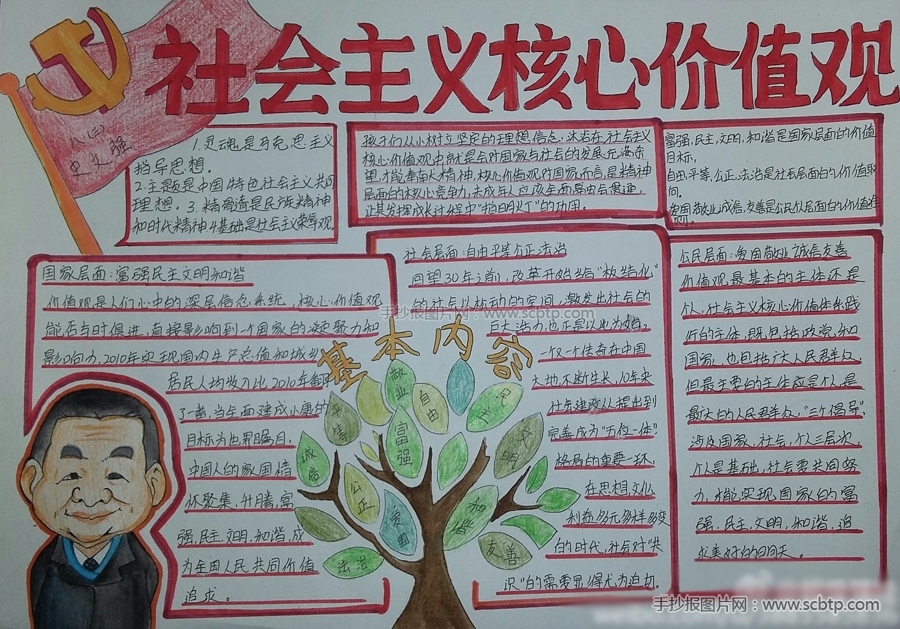 社会主义核心价值观
八(四)
史文强
1.灵魂是马克思主义
指导思想.
2.主题是中国特色社会主义共同
理想. 3.精髓造是民族精神
和时代精神4.基础是社会主义荣辱观.
孩子们从小树立坚定的理想信念,沐浴在社会主义
核心价值观中就是会对国家与社会的发展充满希
望,才能奉献大精神,核心价值观对国家而言,是精神
层面的核心竞争力,未成年人应该全面
让其发挥成长过程中"指明灯"的功用.
富强,民主,文明,和谐是国家层面的价值
目标,
自由,平等,公正,法治是社会层面的价值取
向
爱国,敬业,诚信,友善是公民个人层面的价值准
则.
国家层面:富强民主文明和谐
价值观是人们心中的深层信念系统. 核心价值观
能否与时俱进,直接影响到一个国家的凝聚力和
影响力,2010年实现国内生产总值和城乡
居民人均收入比2010年翻
了一番,当全面建成小康的
目标为世界瞩目.
中国人的家国情
怀聚集,升腾,富
强,民主,文明,和谐,成
为全国人民共同价值
追求.
社会层面:自由平等公正法治
回望30年之前,改革开始给"板结化"
的社会以松动的空间,激发出社会的
巨大活力,也正是以此为始.
一个又一个传奇在中国
大地不断生长,10年来
社会建设从提出到
完善成为"五位一体"
格局的重要一环.
在思想,文化
利益多元多样多变
的时代,社会对"共
识"的需要显得尤为迫切.
公民层面:爱国敬业诚信友善
价值观最基本的主体还是
个人,社会主义核心价值体系践
行的主体,既包括政党和
国家,也包括广大人民群众,
但最主要的主体应是个人是
最广大的人民群众,"三个倡导"
涉及国家,社会,个人三层次,
个人是基础,社会要共同努
力,才能实现国家的富
强,民主,文明,和谐,追
求美好的明天.
基本内容
敬业
自由
平等
民主
富强
诚信
文明
公正
爱国
和谐
法治
友善
手抄报图片网:www.scbtp.com
手抄报图片网:www.scbtp.com